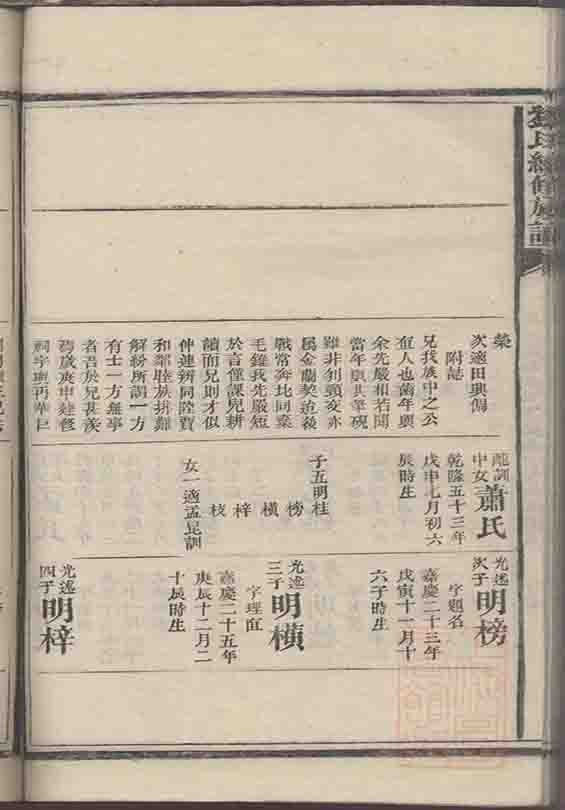 氏續修族譜
榮
次適田興陽
附誌
兄我族中之公
直人也齒年與
余先嚴相若聞
當年與其筆硯
雖非刎頸交亦
屬金蘭契迨後
戰常奔比同棄
毛錐我先嚴短
於言僅課兒耕
讀而兄則才似
仲連辨同陸賈
和鄰睦族排難
解紛所謂一方
有士一方無事
者吾於兄甚羨
焉歲庚申建修
祠宇
訓
中女蕭氏
乾隆五十三年
戊申七月初六
辰時生
子五明桂
榜
橫
梓
枝
女一適孟昆訓
光遙
次子明榜
字題名
嘉慶二十三年
戊寅十一月十
六子時生
光遙
三子明橫
字理
嘉慶二十五年
庚辰十二月二
十辰時生
光遙
四子明梓